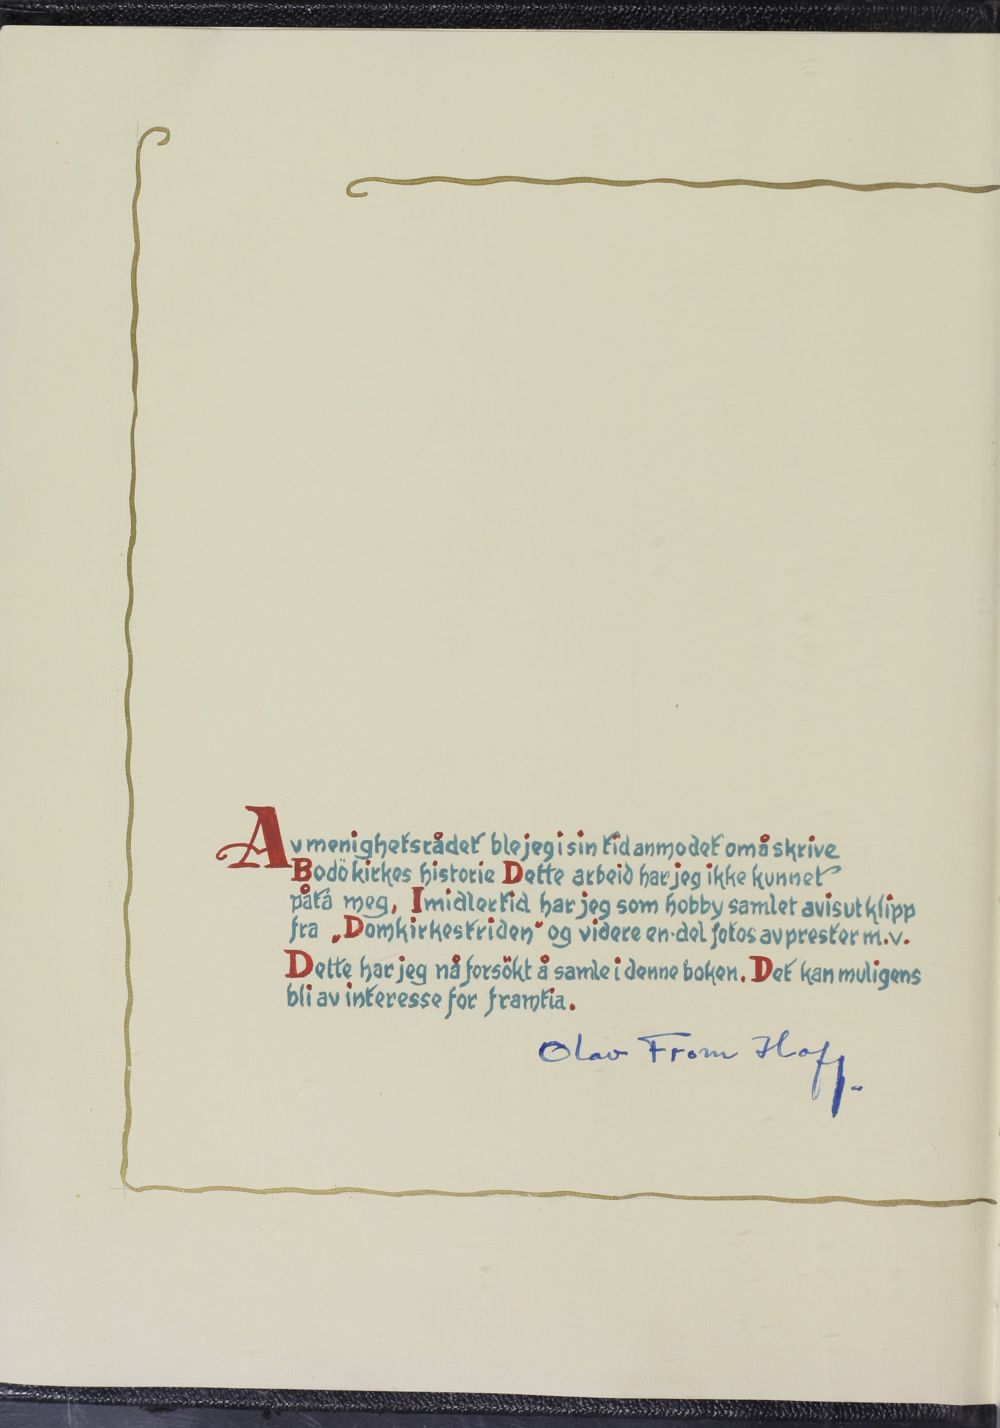 Av menighetsrådet ble jeg i sin tid anmodet om å skrive
Bodö kirkes historie Dette arbeid har jeg ikke kunnet
påta meg, Imidlertid har jeg som hobby samlet avisutklipp
fra „Domkirkestriden" og videre en-del fotos av prester m.v.
Dette har jeg nå forsökt å samle i denne boken. Det kan muligens
bli av interesse for framtia.
Olav From Hoff.-